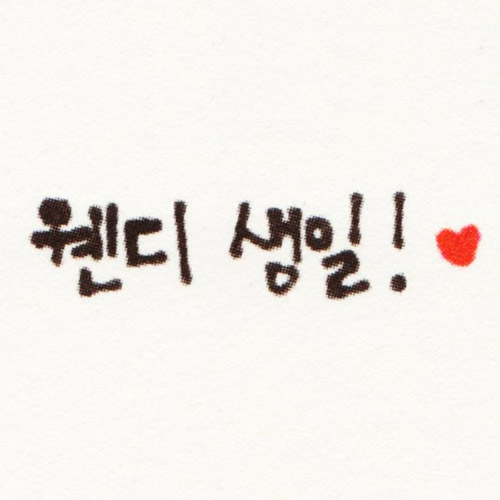 웬디 생일!